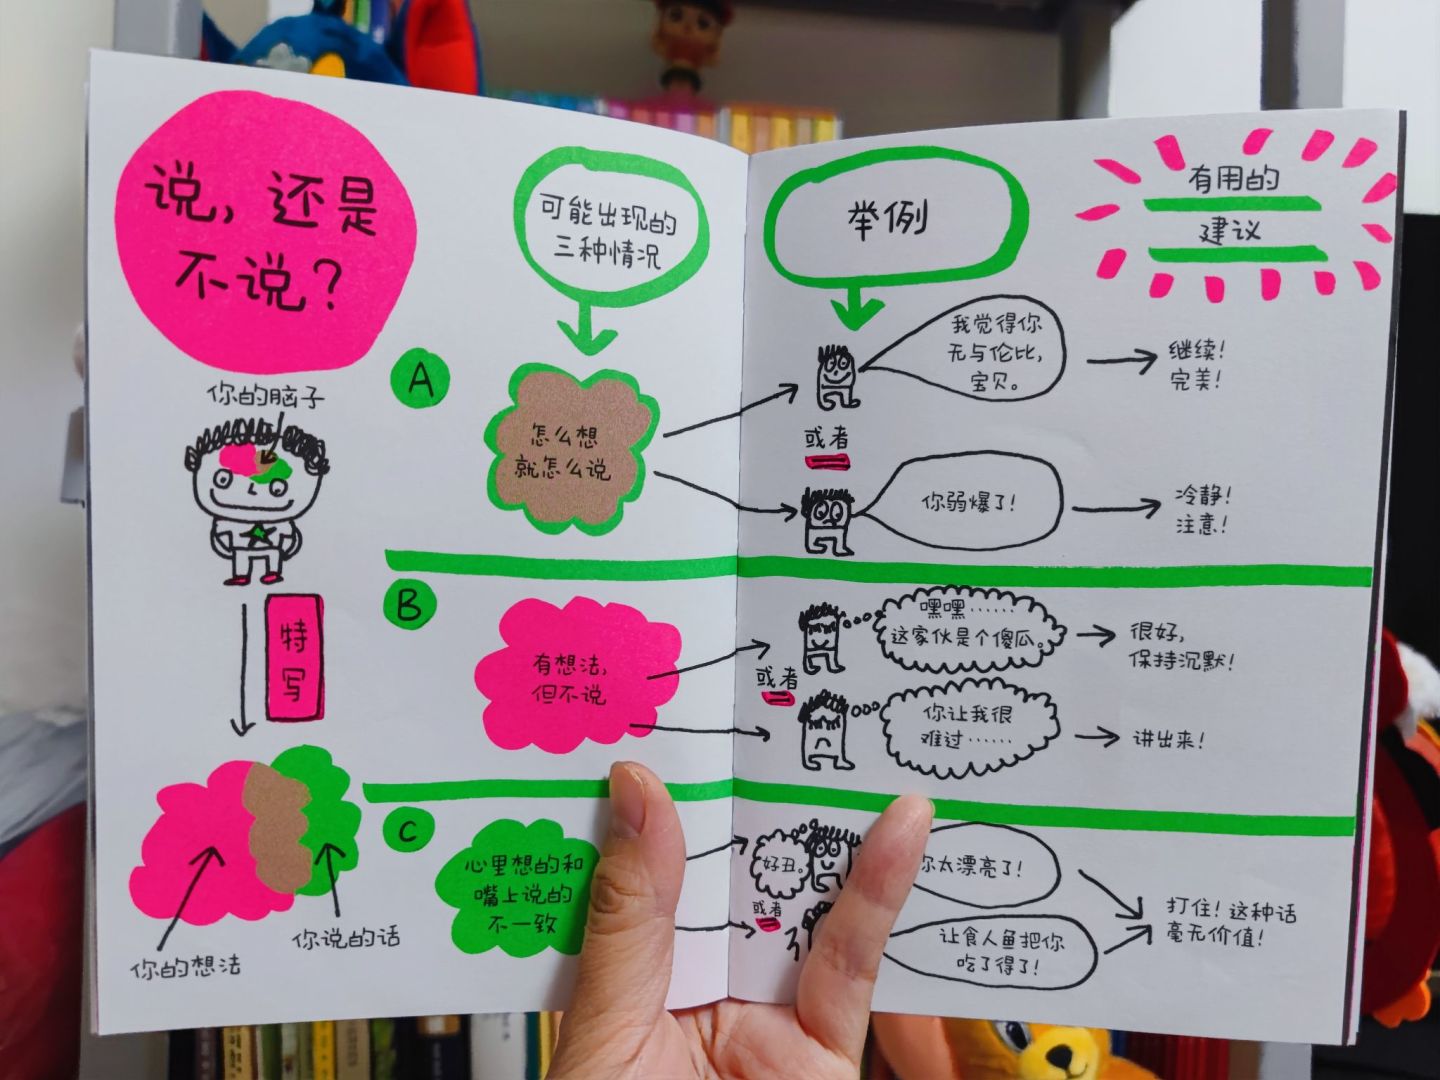 说,还是
不说?
可能出现的
三种情况
举例
有用的
建议
你的脑子
特
写
你的想法
你说的话
A
怎么想
就怎么说
我觉得你
无与伦比,
宝贝。
继续!
完美!
或者
你弱爆了!
冷静!
注意!
B
有想法,
但不说
嘿嘿……
这家伙是个傻瓜。
很好,
保持沉默!
或者
你让我很
难过……
讲出来!
C
心里想的和
嘴上说的
不一致
好丑。
太漂亮了!
或者
让食人鱼把你
吃了得了!
打住!这种话
毫无价值!